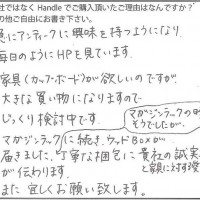 社ではなく Handle でご購入頂いたご理由はなんですか?
の他ご自由にお書き下さい。
急にアンティークに興味を持つようになり、
毎日のようにHPを見ています。
家具(カップ・ボード)が欲しいのですが、
大きな買い物になりますので
じっくり検討中です。
マガジンラックの時もそうでしたが、
マガジンラックに続き、ウッドBOXが
届きました。丁寧な梱包に貴社の誠実さ
が伝わります。
と顧客に対する
また 宜しくお願い致します。